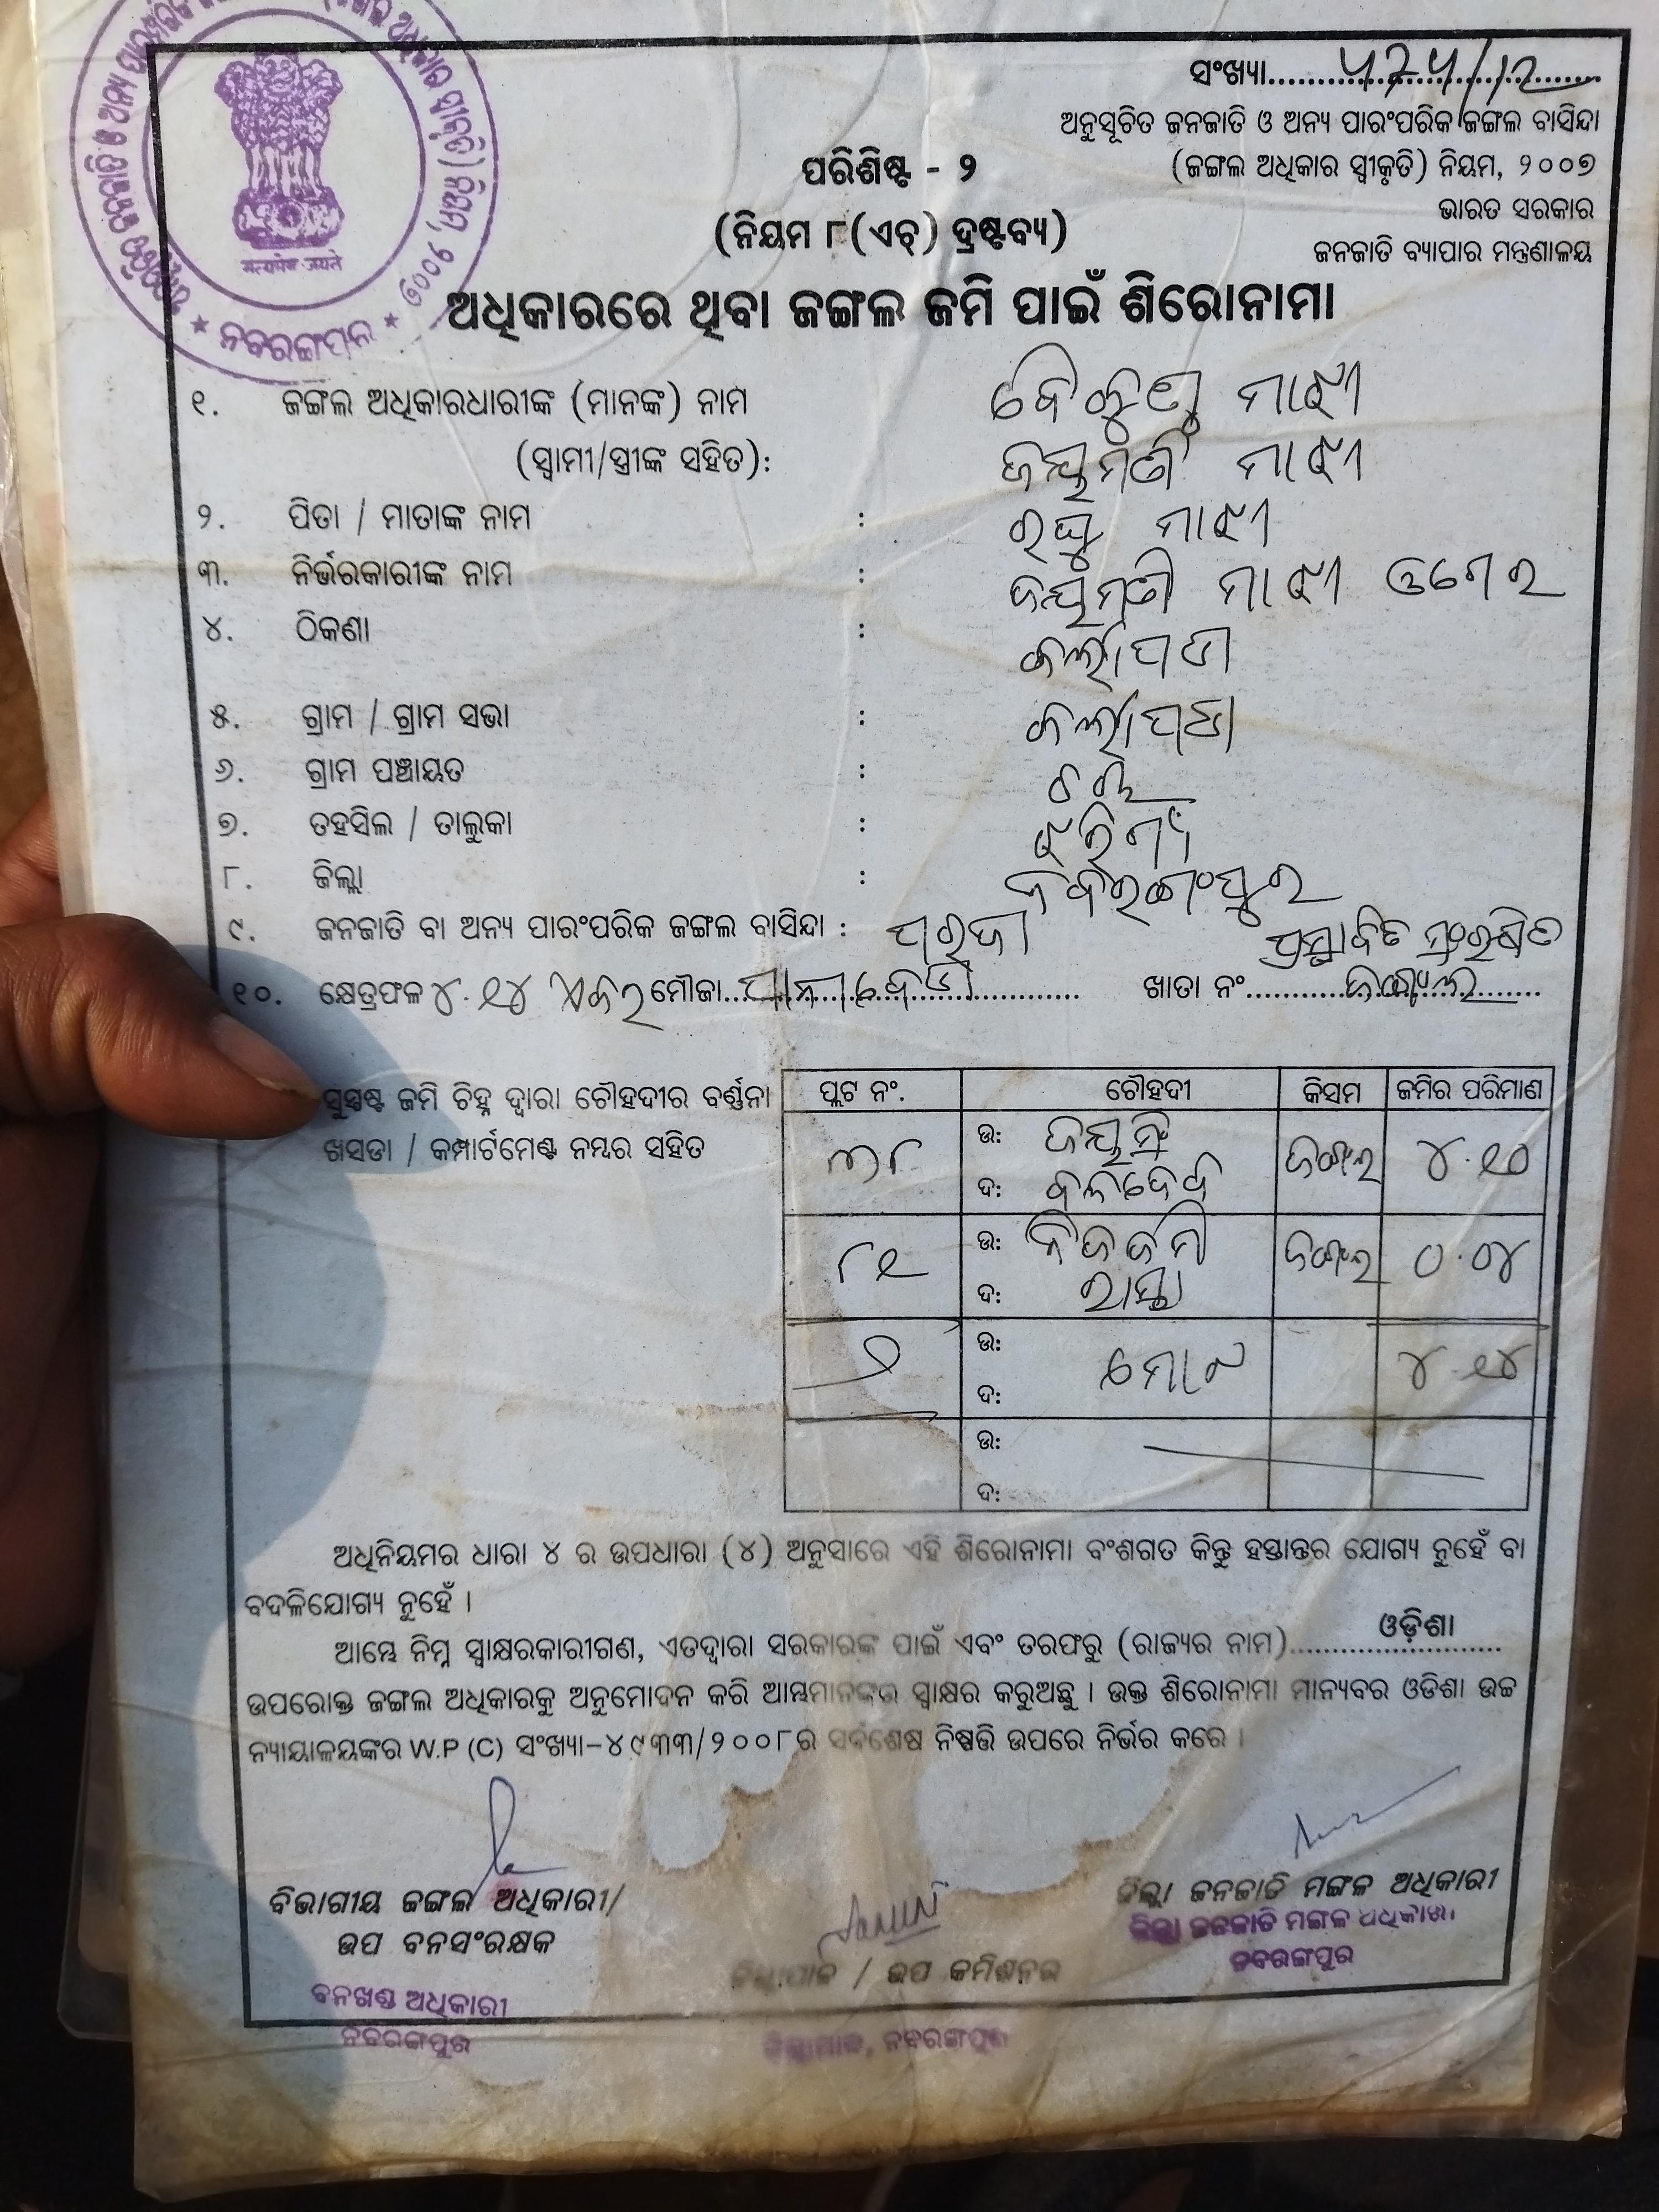 ସଂଖ୍ୟା.....୫୨୫/୧୨.....
ଅନୁସୂଚିତ ଜନଜାତି ଓ ଅନ୍ୟ ପାରଂପରିକ ଜଙ୍ଗଲ ବାସିନ୍ଦା
(ଜଙ୍ଗଲ ଅଧିକାର ସ୍ୱୀକୃତି) ନିୟମ, ୨୦୦୭
ଭାରତ ସରକାର
ଜନଜାତି ବ୍ୟାପାର ମନ୍ତ୍ରଣାଳୟ
ପରିଶିଷ୍ଟ - ୨
(ନିୟମ ୮(ଏଚ୍) ଦ୍ରଷ୍ଟବ୍ୟ)
सत्यमेव जयते
ନବରଙ୍ଗପୁର
ଅଧିକାରରେ ଥିବା ଜଙ୍ଗଲ ଜମି ପାଇଁ ଶିରୋନାମା
୧. ଜଙ୍ଗଲ ଅଧିକାରଧାରୀଙ୍କ (ମାନଙ୍କ) ନାମ ମାଝୀ
(ସ୍ୱାମୀ/ସ୍ତ୍ରୀଙ୍କ ସହିତ): ଜୟମଣି ମାଝୀ
୨. ପିତା / ମାତାଙ୍କ ନାମ : ରଘୁ ମାଝୀ
୩. ନିର୍ଭରକାରୀଙ୍କ ନାମ : ଜୟମଣି ମାଝୀ ଓଗେର
୪. ଠିକଣା : କର୍ଲାପଡା
୫. ଗ୍ରାମ / ଗ୍ରାମ ସଭା : କର୍ଲାପଡା
୬. ଗ୍ରାମ ପଞ୍ଚାୟତ :
୭. ତହସିଲ / ତାଲୁକା : ଝରିଗାଁ
୮. ଜିଲ୍ଲା : ନବରଙ୍ଗପୁର
୯. ଜନଜାତି ବା ଅନ୍ୟ ପାରଂପରିକ ଜଙ୍ଗଲ ବାସିନ୍ଦା : ପରଜା ପ୍ରସ୍ତାବିତ ସଂରକ୍ଷିତ
୧୦. କ୍ଷେତ୍ରଫଳ ୪.୧୪ ଏକର ମୌଜା..... ପାନାବେଡା ..... ଖାତା ନଂ..... ଜଙ୍ଗଲ .....
ସୁସ୍ପଷ୍ଟ ଜମି ଚିହ୍ନ ଦ୍ୱାରା ଚୌହଦୀର ବର୍ଣ୍ଣନା
ଖସଡା / କମ୍ପାର୍ଟମେଣ୍ଟ ନମ୍ବର ସହିତ
ପ୍ଲଟ ନଂ. ଚୌହଦୀ କିସମ ଜମିର ପରିମାଣ
୩୮ ଉ: ଜଙ୍ଗଲ ୪.୧୦
ଦ: ବଳଦେବ
୮୧ ଉ: ନିଜ ଜମି ଜଙ୍ଗଲ ୦.୦୪
ଦ: ରାସ୍ତା
୨ ଉ: ମୋଟ ୪.୧୪
ଦ:
ଉ:
ଦ:
ଅଧିନିୟମର ଧାରା ୪ ର ଉପଧାରା (୪) ଅନୁସାରେ ଏହି ଶିରୋନାମା ବଂଶଗତ କିନ୍ତୁ ହସ୍ତାନ୍ତର ଯୋଗ୍ୟ ନୁହେଁ ବା
ବଦଳିଯୋଗ୍ୟ ନୁହେଁ ।
ଆମ୍ଭେ ନିମ୍ନ ସ୍ୱାକ୍ଷରକାରୀଗଣ, ଏତଦ୍ୱାରା ସରକାରଙ୍କ ପାଇଁ ଏବଂ ତରଫରୁ (ରାଜ୍ୟର ନାମ)..... ଓଡ଼ିଶା .....
ଉପରୋକ୍ତ ଜଙ୍ଗଲ ଅଧିକାରକୁ ଅନୁମୋଦନ କରି ଆମ୍ଭମାନଙ୍କର ସ୍ୱାକ୍ଷର କରୁଅଛୁ । ଉକ୍ତ ଶିରୋନାମା ମାନ୍ୟବର ଓଡିଶା ଉଚ୍ଚ
ନ୍ୟାୟାଳୟଙ୍କର W.P (C) ସଂଖ୍ୟା-୪୯୩୩/୨୦୦୮ର ସର୍ବଶେଷ ନିଷ୍ପତ୍ତି ଉପରେ ନିର୍ଭର କରେ ।
ବିଭାଗୀୟ ଜଙ୍ଗଲ ଅଧିକାରୀ/
ଉପ ବନସଂରକ୍ଷକ
ବନଖଣ୍ଡ ଅଧିକାରୀ
ନବରଙ୍ଗପୁର
ଜିଲ୍ଲାପାଳ / ଉପ କମିଶନର
ଜିଲ୍ଲାପାଳ, ନବରଙ୍ଗପୁର
ଜିଲ୍ଲା ଜନଜାତି ମଙ୍ଗଳ ଅଧିକାରୀ
ଜିଲ୍ଲା ଜନଜାତି ମଙ୍ଗଳ ଅଧିକାରୀ
ନବରଙ୍ଗପୁର